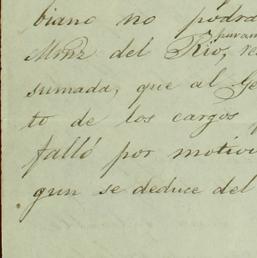 biano no podra
puram
Mrnz del Rio, re
sumada, que al Ge
to de los cargos
falló por motivo
gun se deduce del